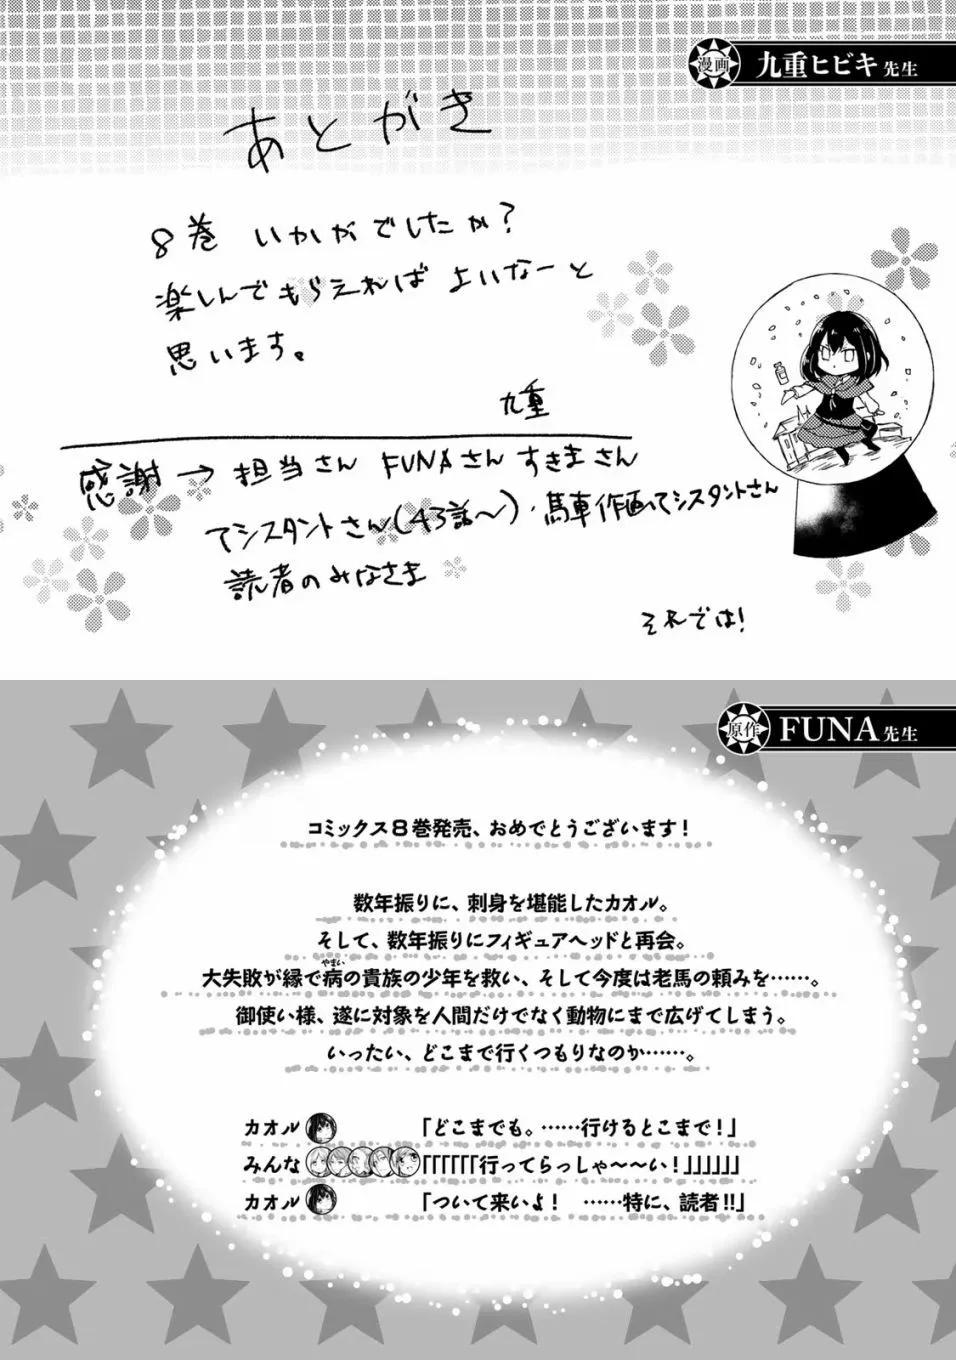 漫画 九重ヒビキ先生
あとがき
8巻 いかがでしたか?
楽しんでもらえれば よいなーと
思います。
九重
感謝→担当さん FUNAさん すきまさん
アシスタントさん(43話〜)・馬車作画アシスタントさん
読者のみなさま
それでは!
原作 FUNA先生
コミックス8巻発売、おめでとうございます!
数年振りに、刺身を堪能したカオル。
そして、数年振りにフィギュアヘッドと再会。
やまい
大失敗が縁で病の貴族の少年を救い、そして今度は老馬の頼みを……。
御使い様、遂に対象を人間だけでなく動物にまで広げてしまう。
いったい、どこまで行くつもりなのか……。
カオル 「どこまでも。……行けるとこまで!」
みんな 「「「「「「行ってらっしゃ〜〜い!」」」」」」
カオル 「ついて来いよ! ……特に、読者!!」